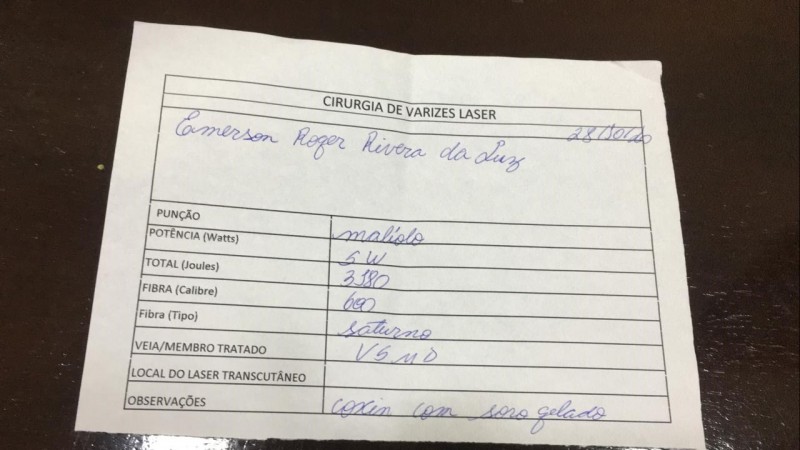 CIRURGIA DE VARIZES LASER
28/10/20
Emerson Roger Rivera da Luz
PUNÇÃO maléolo
POTÊNCIA (Watts) 5 W
TOTAL (Joules) 3380
FIBRA (Calibre) 600
Fibra (Tipo) saturno
VEIA/MEMBRO TRATADO VSMD
LOCAL DO LASER TRANSCUTÂNEO
OBSERVAÇÕES coxin com soro gelado